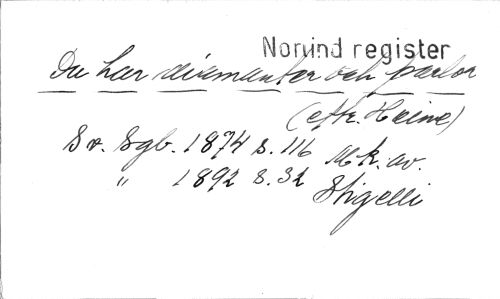 Norlind register
Du har diamanter och pärlor
(efter Heine)
Sv. Sgb. 1874 s. 116 Mk. av.
" 1892 s. 32 Stigelli